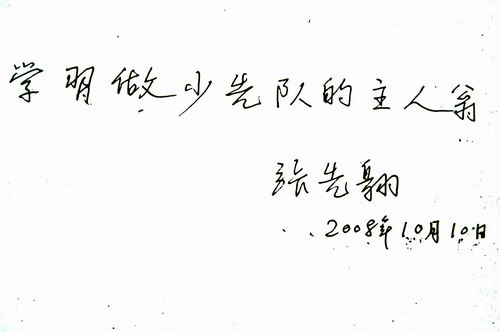 学习做少先队的主人翁
张先翱
2008年10月10日